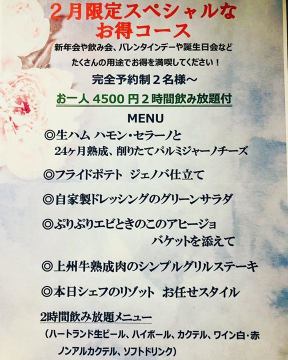 ２月限定スペシャルな
お得コース
新年会や飲み会、バレンタインデーや誕生日会など
たくさんの用途でお得を満喫してください！
完全予約制２名様～
お一人４５００円２時間飲み放題付
MENU
◎生ハム ハモン・セラーノと
２４ヶ月熟成、削りたてパルミジャーノチーズ
◎フライドポテト ジェノバ仕立て
◎自家製ドレッシングのグリーンサラダ
◎ぷりぷりエビときのこのアヒージョ
バケットを添えて
◎上州牛熟成肉のシンプルグリルステーキ
◎本日シェフのリゾット お任せスタイル
２時間飲み放題メニュー
（ハートランド生ビール、ハイボール、カクテル、ワイン白・赤
ノンアルカクテル、ソフトドリンク）